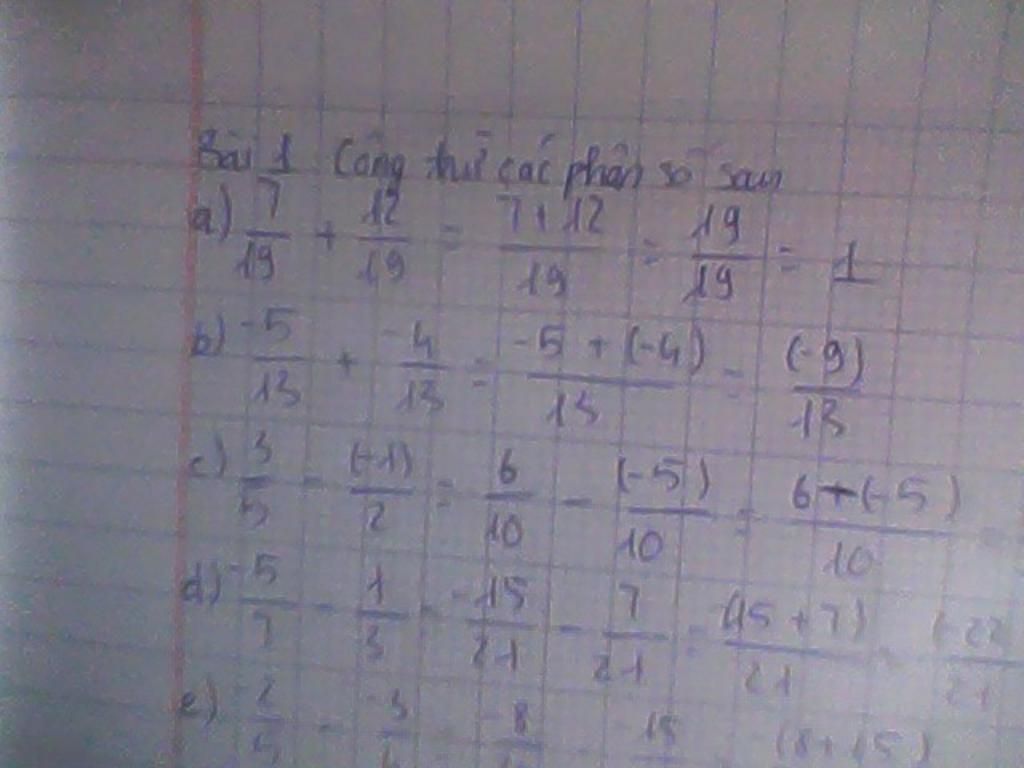 Bài 1 Cộng trừ các phân số sau
a) 7/19 + 12/19 = 7+12/19 = 19/19 = 1
b) -5/13 + -4/13 = -5 + (-4)/13 = (-9)/13
c) 3/5 - (-1)/2 = 6/10 - (-5)/10 = 6+(-5)/10
d) -5/7 - 1/3 = -15/21 - 7/21 = (15+7)/21 = (-22/21
e) (8+15)